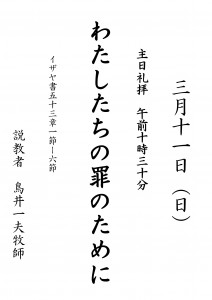 三月十一日（日）
主日礼拝　午前十時三十分
わたしたちの罪のために
イザヤ書五十三章一節－六節
説教者　鳥井一夫牧師